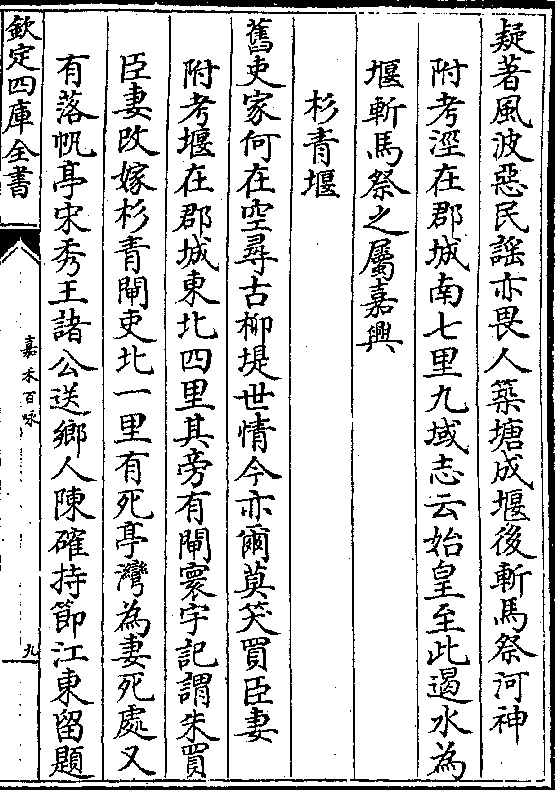 疑著風波惡民謡亦畏人築塘成堰後斬馬祭河神
附考涇在郡城南七里九域志云始皇至此遏水為
堰斬馬祭之屬嘉興
杉青堰
舊吏家何在空尋古柳堤世情今亦爾莫笑買臣妻
附考堰在郡城東北四里其旁有閘寰宇記謂朱買
臣妻改嫁杉青閘吏北一里有死亭灣為妻死處又
有落帆亭宋秀王諸公送鄉人陳確持節江東留題
欽定四庫全書
嘉禾百咏
九